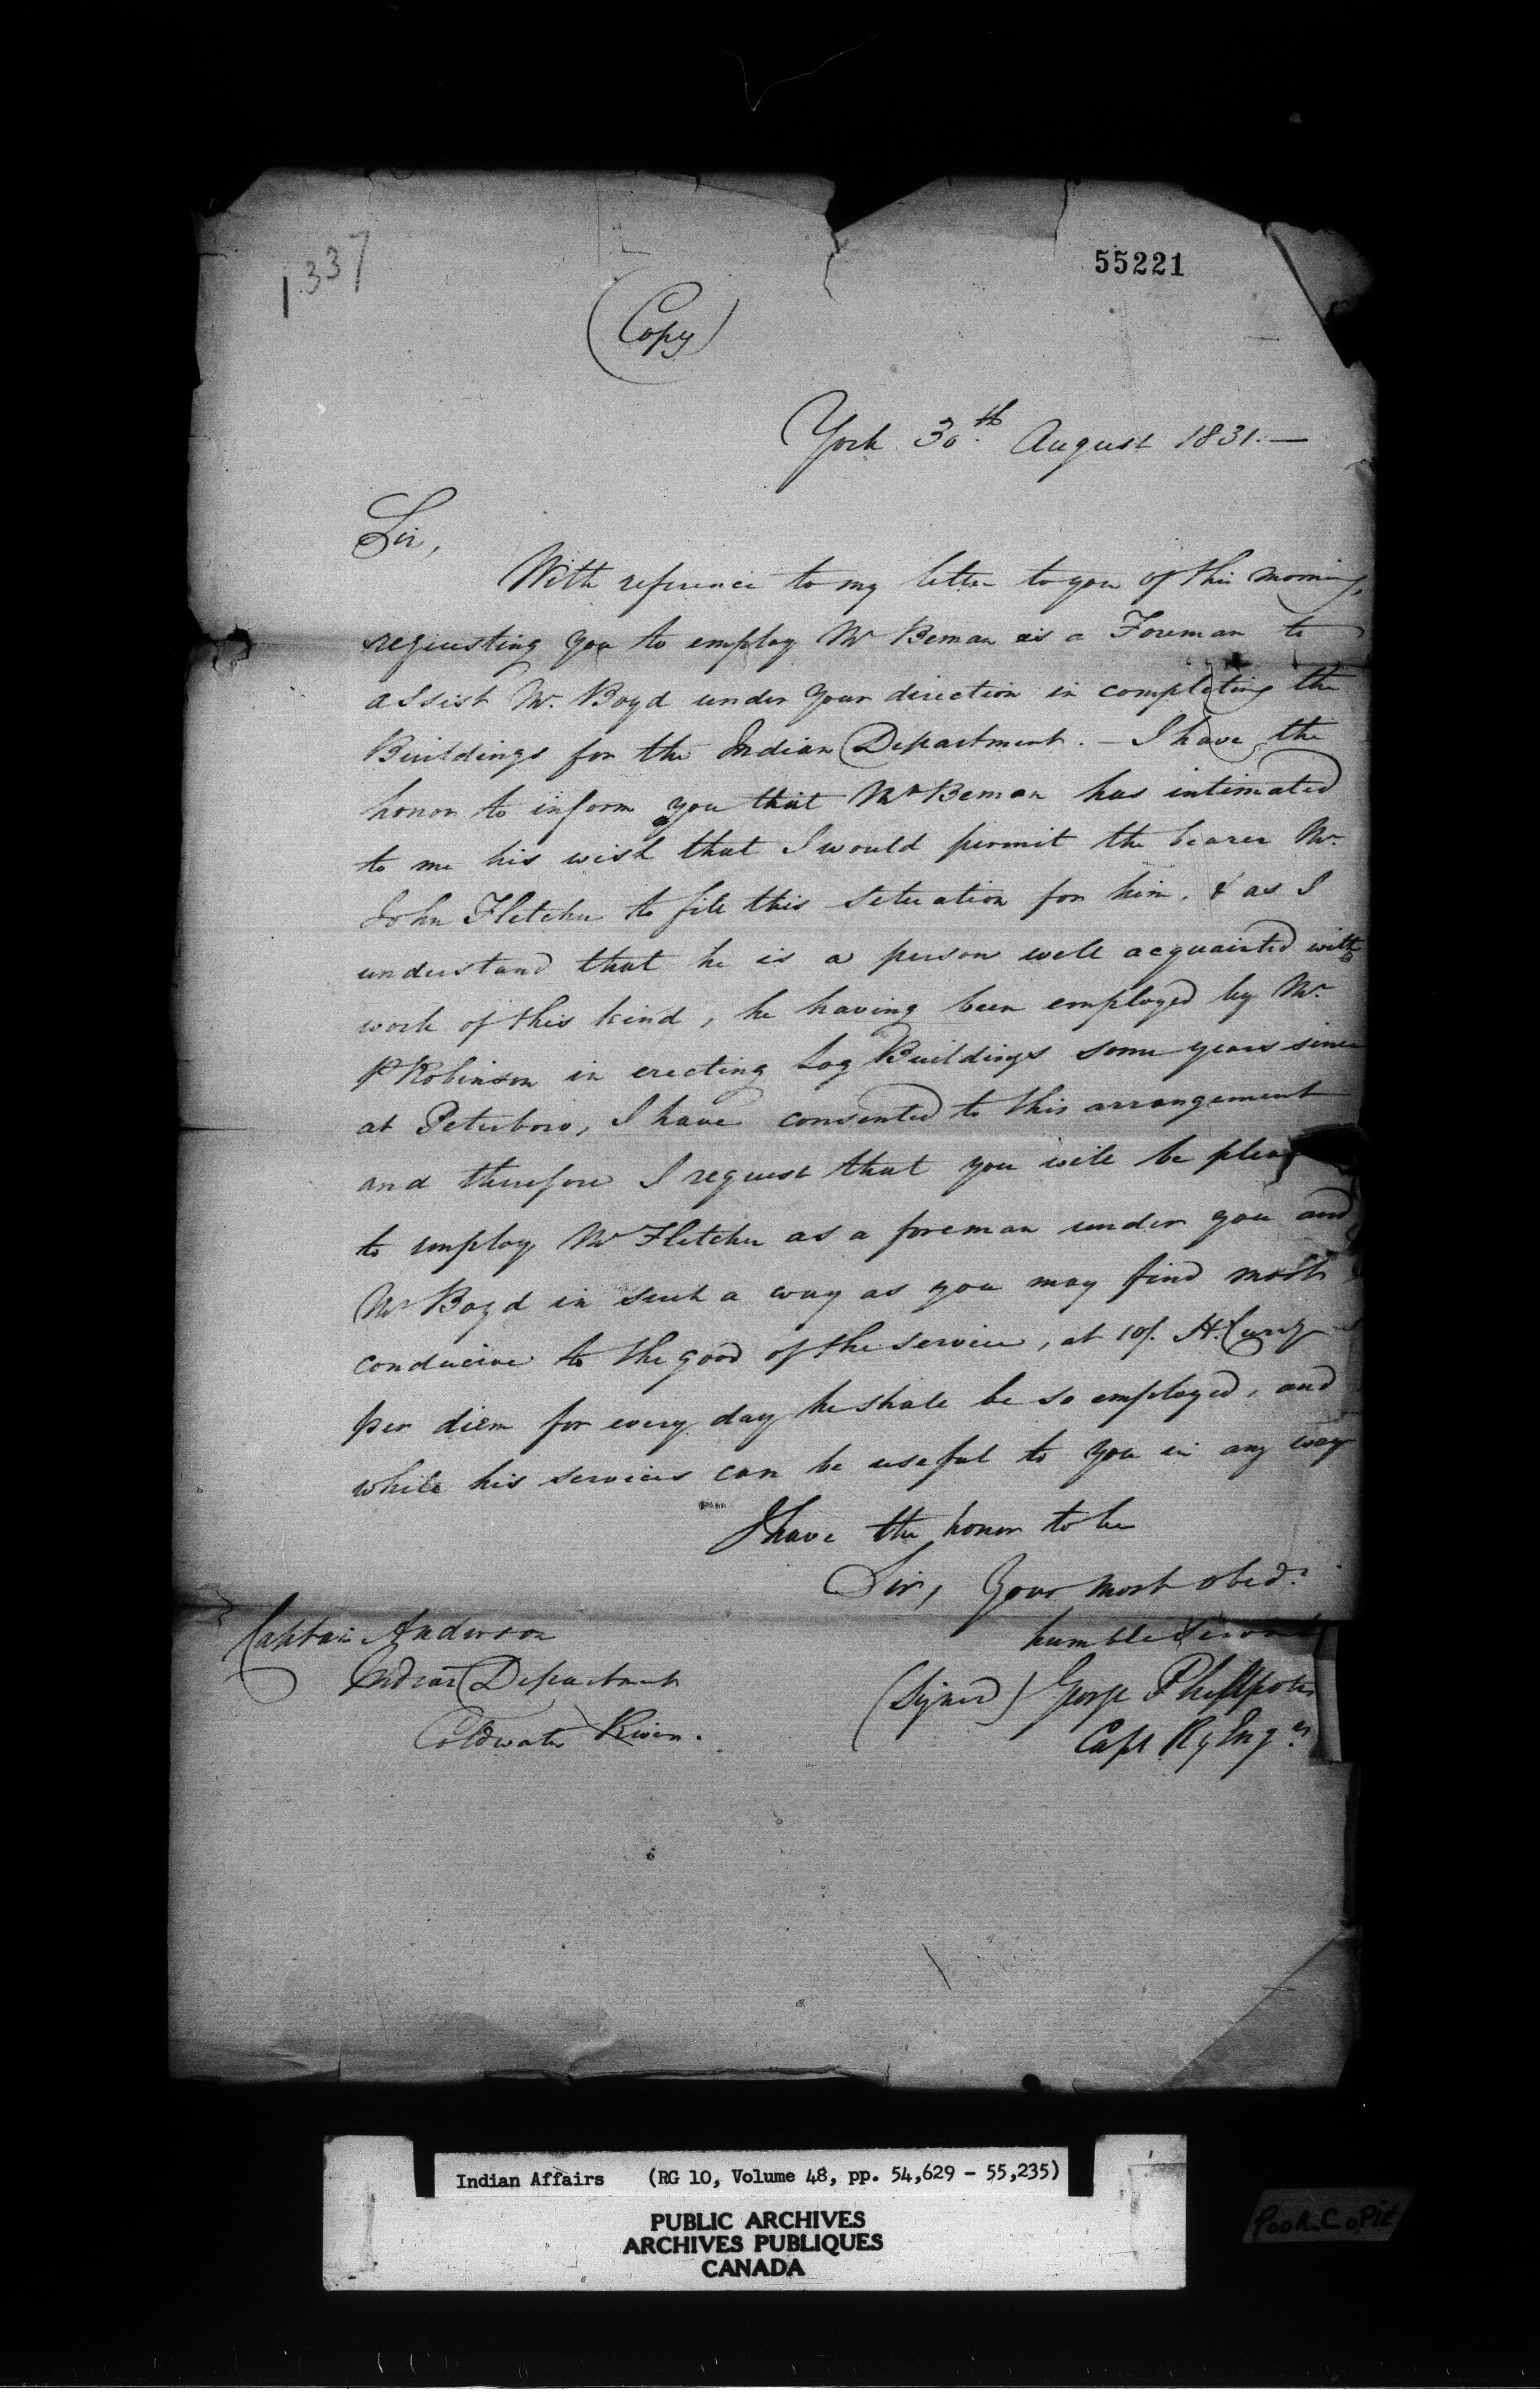 1337
55221
(Copy)
York 30th August 1831.—
Sir,
With reference to my letter to you of this morning,
requesting you to employ Mr Beman as a Foreman to
assist Mr. Boyd under your direction in completing the
Buildings for the Indian Department. — I have the
honor to inform you that Mr Beman has intimated
to me his wish that I would permit the bearer Mr.
John Fletcher to fill this situation for him. & as I
understand that he is a person well acquainted with
work of this kind, he having been employed by Mr.
P Robinson in erecting Log Buildings some years since
at Peterboro, I have consented to this arrangement
and therefore I request that you will be pleas
to employ Mr Fletcher as a foreman under you and
Mr Boyd in such a way as you may find most
conducive to the good of the service, at 10/. H. Curry
per diem for every day he shall be so employed, and
while his services can be useful to you in any way
I have the honor to be
Sir, Your most obedt.
humble Servant
(Signed) George Phillpotts
Capt Ry Engrs
Captain Anderson
Indian Department
Coldwater River.
Indian Affairs (RG 10, Volume 48, pp. 54,629 - 55,235)
PUBLIC ARCHIVES
ARCHIVES PUBLIQUES
CANADA
POOR COPIE